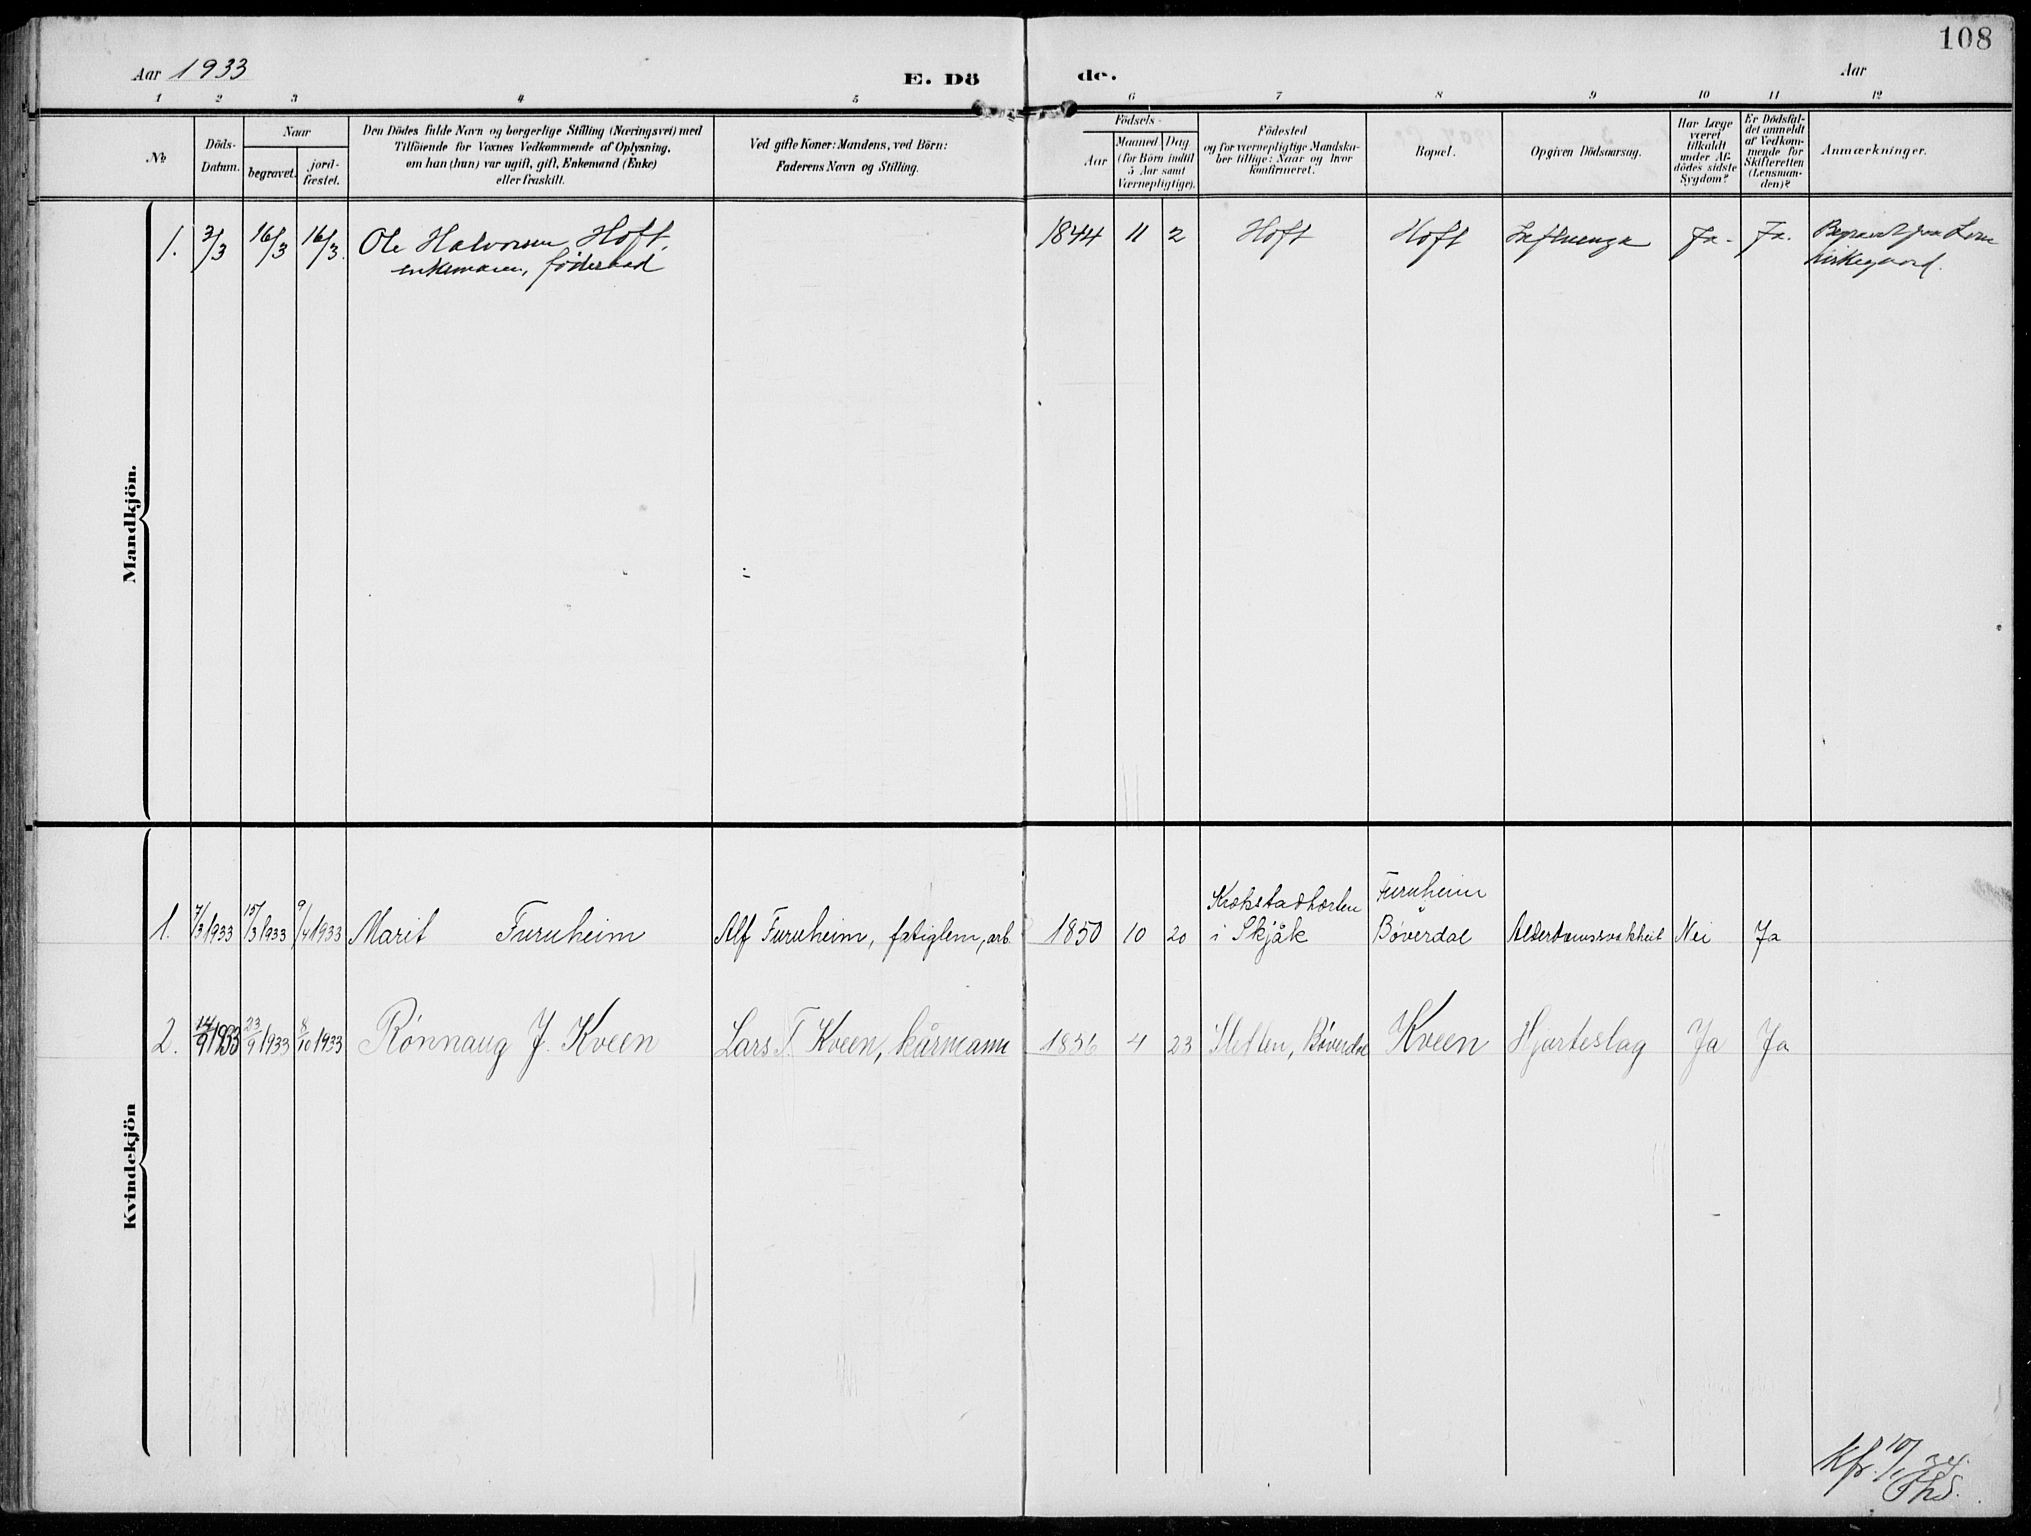 108
Aar 1933
E. Dö
de.
Aar
1 2 3 4 5 6 7 8 9 10 11 12
No
Döds-
Datum.
Naar
begravet.
jord-
fæstet.
Den Dödes fulde Navn og borgerlige Stilling (Næringsvei) med
Tilföiende for Voxnes Vedkommende af Oplysning,
om han (hun) var ugift, gift, Enkemand (Enke)
eller fraskilt.
Ved gifte Koner: Mandens, ved Börn:
Faderens Navn og Stilling.
Födsels-
Aar
Maaned Dag
(for Börn indtil
5 Aar samt
Værnepligtige).
Födested
og for værnepligtige Mandska-
ber tillige: Naar og hvor
konfirmeret.
Bopæl.
Opgiven Dödsaarsag.
Har Læge
været
tilkaldt
under Af-
dödes sidste
Sygdom?
Er Dödsfal-
det anmeldt
af Vedkom-
mende for
Skifteretten
(Lensman-
den)?
Anmærkninger.
Mandkjön.
1. 3/3 16/3 16/3. Ole Halvorsen Hoft, 1844 11 2 Hoft Hoft Influenza Ja. Ja. Begravet paa Lom
enkemann, föderaad kirkegaard.
Kvindekjön
Krokstadhorten Furuheim
1. 7/3 1933 15/3 1933 9/4 1933 Marit Furuheim Alf Furuheim, fatiglem, arb. 1850 10 20 i Skjåk Bøverdal Alderdomssvakheit Nei Ja
2. 14/9 1933 23/9 1933 8/10 1933 Rønnaug J. Kveen Lars T. Kveen, kårmann 1856 4 23 Sletten, Bøverdal Kveen Hjarteslag Ja Ja
Kfr. 10/1 34.